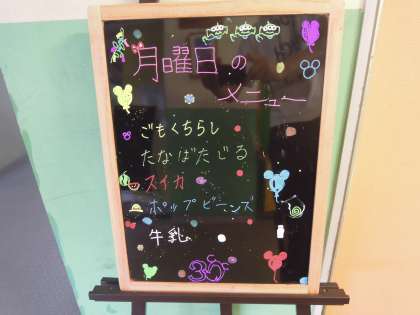 月曜日の
メニュー
ごもくちらし
たなばたじる
スイカ
ポップビーンズ
牛乳